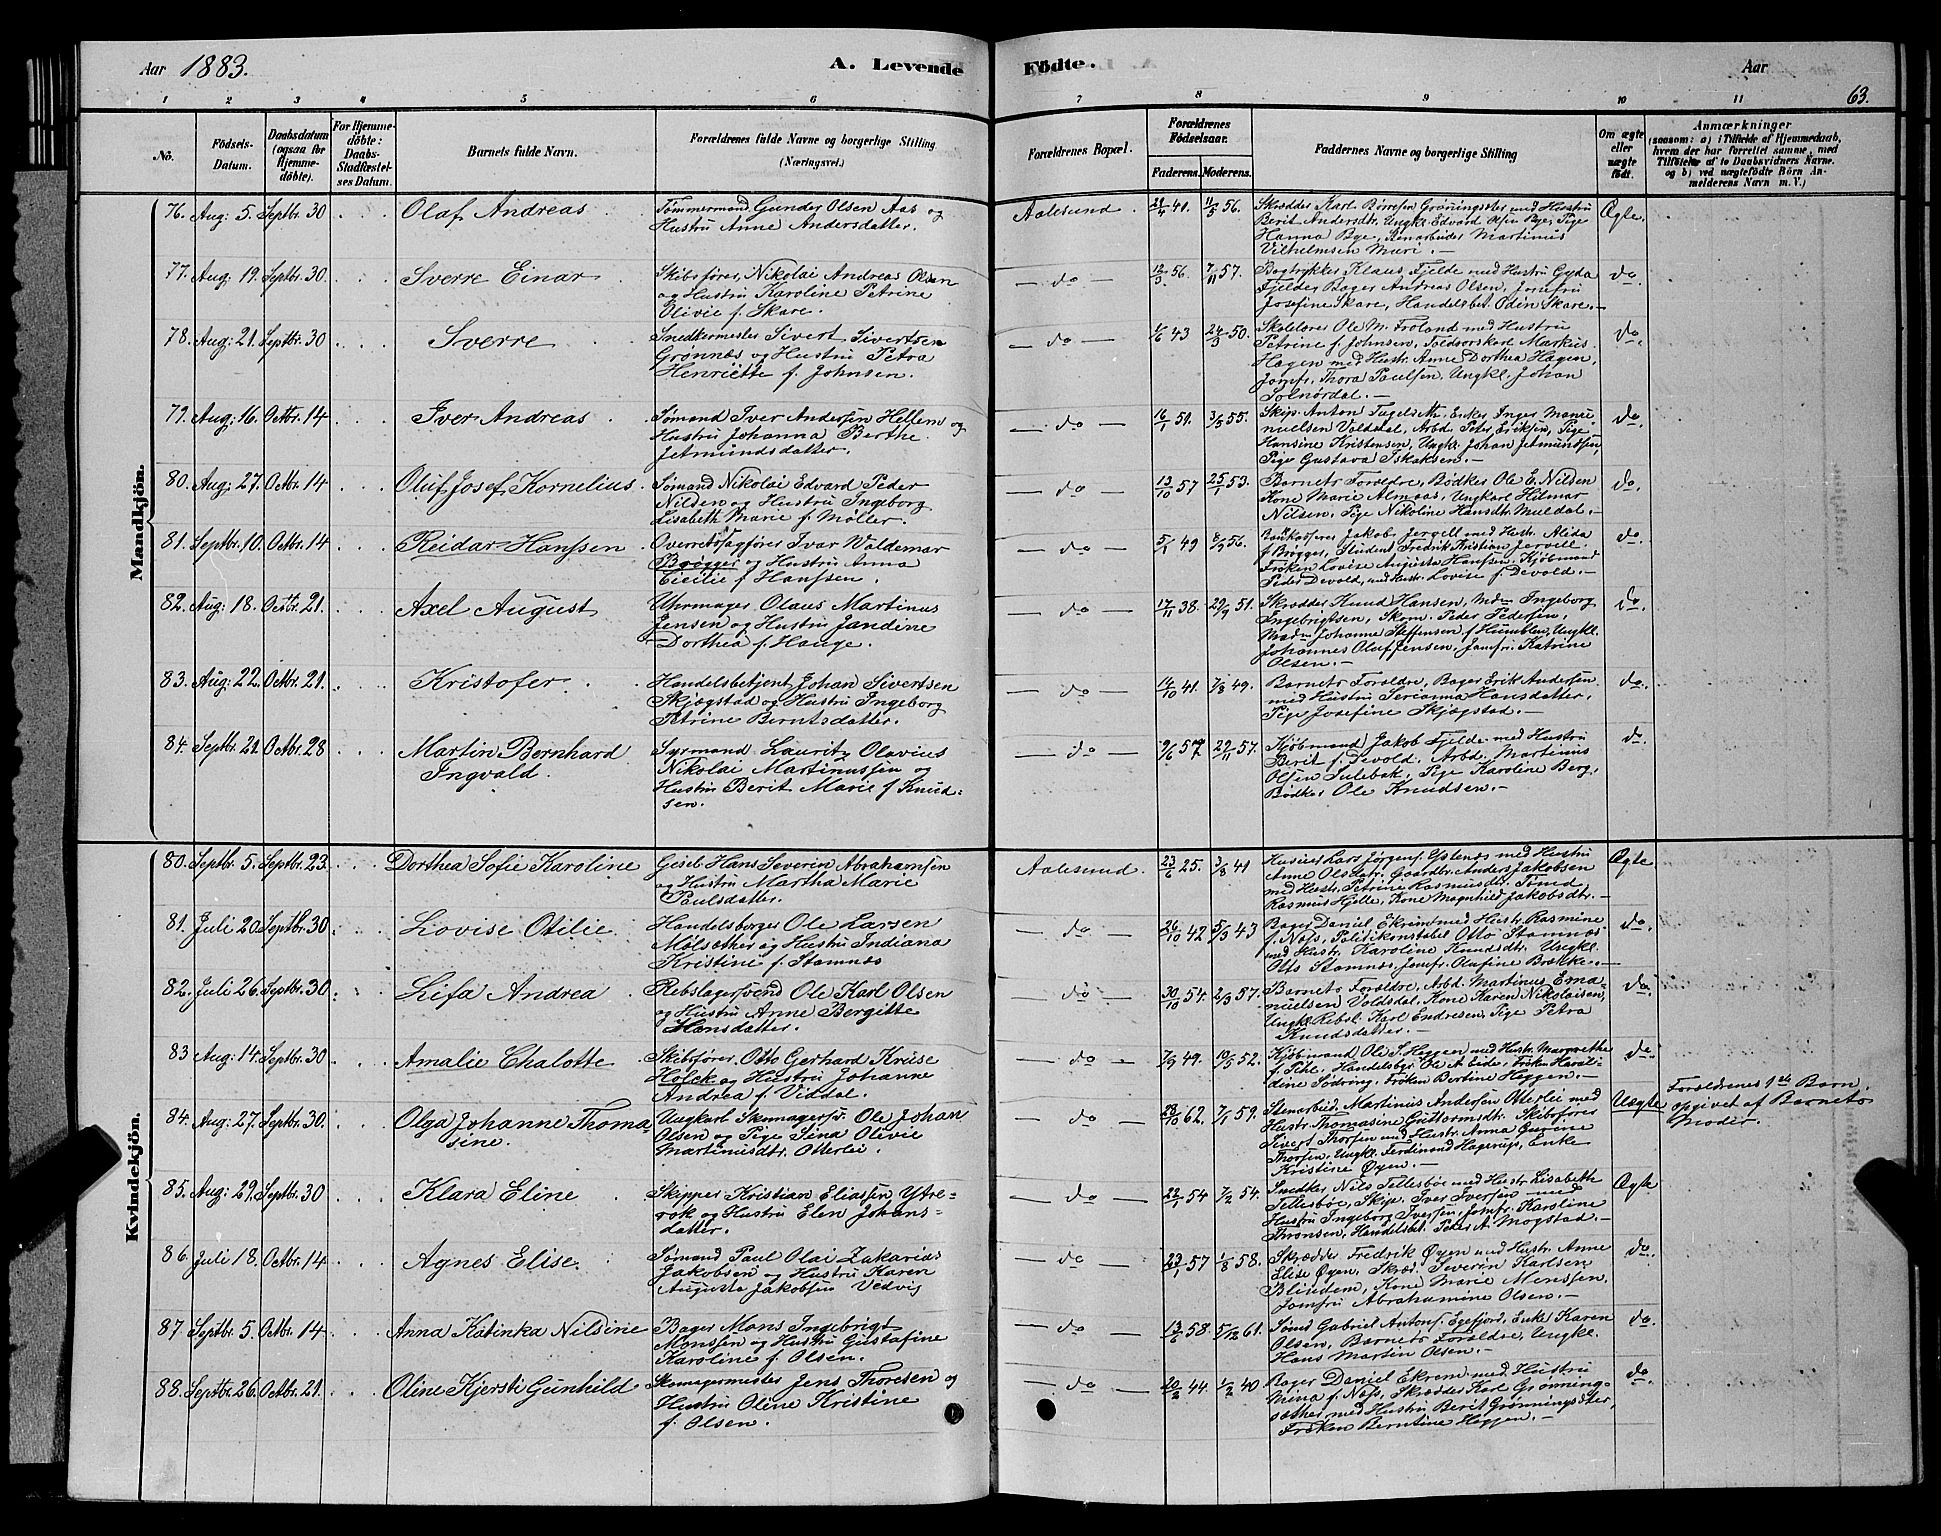 Aar 1883.
A. Levende
Födte.
Aar
63.
1 2 3 4 5 6 7 8 9 10 11
No.
Födsels-Datum.
Daabsdatum (ogsaa for Hjemmedöbte).
For Hjemmedöbte: Daabs-Stadfæstelses Datum.
Barnets fulde Navn.
Forældrenes fulde Navne og borgerlige Stilling (Næringsvei.)
Forældrenes Bopæl.
Forældrenes Födselsaar.
Faderens. Moderens.
Faddernes Navne og borgerlige Stilling
Om ægte eller uægte födt.
Anmærkninger
(saasom: a) i Tilfælde af Hjemmedaab, hvem der har forrettet samme, med Tilföielse af to Daabsvidners Navne. og b) ved uægtefödte Börn Anmelderens Navn m. V.)
Mandkjön.
76. Aug: 5. Septbr. 30 Olaf Andreas Tømmermand Gunder Olsen Aas og Aalesund 21/4 41. 11/5 56. Skrædder Karl Ægte.
Hustru Anne Andersdatter. Berit Andersdtr. Ungk. Edvard Olsen Bye, Pige
Hanna Bye, Stenarbeider Martinus
Vilhelmsen Muri.
77. Aug. 19. Septbr. 30. Sverre Einar Skibsfører Nikolai Andreas Olsen do 12/3 56. 7/11 57. Bogtrykker Klaus Fjelde med Hustru Gyda do.
og Hustru Karoline Petrine Fjelde, Bager Andreas Olsen, Jomfru
Olivie f. Skare. Josefine Skare, Handelsbet. Odin Skare.
78. Aug: 21. Septbr. 30 Sverre Snedkermester Sivert Sivertsen do 1/6 43 24/3 50. Skolelærer Ole M. Froland med Hustru do
Grønnæs og Hustru Petra Petrine f. Johnsen, Toldoorskarl Markus
Henriette f. Johnsen. Hagen med Hustr. Anne Dorthea Hagen,
Jomfr. Thora Paulsen, Ungkl. Johan
Solnørdal.
79. Aug: 16. Octbr. 14 Iver Andreas Sømand Iver Andersen Hellem og do 16/1 59. 3/5 55. Skip. Anton do.
Hustru Johanna Berthe Voldsdal, Arbd. Peter Eriksen, Pige
Jetmundsdatter. Hansine Kristensen, Ungk. Johan Jetmundsen,
Pige Gustava Iskaksen.
80. Aug: 27. Octbr. 14 Oluf Josef Kornelius. Sømand Nikolai Edvard Peder do 13/10 57 25/1 53. Barnets Forældre, Bødker Ole E. Nilsen do.
Nilsen og Hustru Ingeborg Kone Marie Almaas, Ungkarl Hilmar
Lisabeth Marie f. Møller. Nilsen, Pige Nikoline Hansdtr. Muldal.
81. Septbr. 10. Octbr. 14 Reidar Hanssen Overretssagfører Ivar Waldemar do 49 56. Jakob Jervell med Hustr. Alida do.
Brøgger og Hustru Anna f. Brøgger, Student Fredrik Kristian Jervell.
Cicilie f. Hanssen. Frøken Lovise Augusta Hanssen, Kjøbmand
Peder Devold, med Hustr. Lovise f. Devold.
82. Aug: 18. Octbr. 21. Axel August Uhrmager Olaus Martinus do 17/11 38. 29/9 51. Skrædder Knud Hansen, Ingeborg do
Jensen og Hustru Jandine Ingebrigtsen, Skom. Peder Pedersen,
Dorthea f. Hauge. Johanne Steffensen f. Humblen, Ungkl.
Johannes Oluf Jensen, Jomfr. Katrine
Olsen.
83. Aug: 22. Octbr. 21. Kristofer Handelsbetjent Johan Sivertsen do 14/10 41. 7/8 49. Barnets Forældre, Bager Erik Andersen do.
Skjægstad og Hustru Ingeborg med Hustru Serianna Hansdatter,
Petrine Berntsdatter. Pige Josefine Skjægstad.
84. Septbr. 21. Octbr. 28 Martin Bernhard Ingvald. Lauritz Olavius do 9/6 57 22/11 57. Kjøbmand Jakob Fjelde med Hustru do.
Nikolai Martinussen og Berit f. Devold. Arbd. Martinus
Hustru Berit Marie f. Knud- Olsen Sulebak, Pige Karoline Berg,
sen. Bødker Ole Knudsen.
Kvindekjön.
80. Septbr. 5. Septbr. 23. Dorthea Sofie Karoline Hans Severin Abrahamsen Aalesund. 23/6 25. 3/8 41 Lars Jørgens. Ystenæs med Hustru Ægte
og Hustru Martha Marie Anne Olsdatr. Anders Jakobsen
Paulsdatter. med Hustr. Petrine Rasmusdtr.
Rasmus Hjelle, Kone Magnhild Jakobsdtr.
81. Juli 20. Septbr. 30 Lovise Otilie Handelsborger Ole Larsen do 26/10 42 5/3 43 Bager Daniel Ekrem med Hustr. Rasmine do.
Mølsæther og Hustru Indiana f. Næss, Politikonstabel Otto Stamnæs
Kristine f. Stamnæs med Hustr. Karoline Knudsdtr. Ungkl.
Otto Stamnæs, Jomfr. Olufine Brække.
82. Juli 26. Septbr. 30. Lisa Andrea Rebslagersvend Ole Karl Olsen do 30/10 54. 2/3 57. Barnets Forældre, Arbd. Martinus Ema- do
og Hustru Anne Bergitte nuelsen Voldsdal, Kone Karen Nikolaisen,
Hansdatter. Ungk. Rebsl. Karl Endresen, Pige Petra
Knudsdatter.
83 Aug: 14. Septbr. 30 Amalie Chalotte Skibsfører Otto Gerhard Kruse do 7/9 49. 19/5 52. Kjøbmand Ole S. Heggen med Hustr. Margrethe do
Holck og Hustru Johanne f. Pihl. Handelsbgr. Ole A Eide, Frøken Karol-
Andrea f. Viddal. dine Sødring, Frøken Bertine Heggen.
84. Aug: 27. Septbr. 30. Olga Johanne Thoma sine. Ungkarl Skomagersv. Ole Johan do 28/10 62. 7/1 59. Stenarbeid. Martinus Andersen Otterlei med Uægte Forældrenes 1ste Barn,
Olsen og Pige Sina Olivie Hustr. Thomasine Guttormsdtr. Skibsfører opgivet af Barnets
Martinusdtr. Otterlei. Sivert Thorsen med Hustr. Anna Moder.
Thorsen, Ungk. Ferdinand Hagerup, Enke
Kristine Øyen.
85. Aug: 29. Septbr. 30 Klara Eline Skipper Kristian Eliassen Ystre- do 22/1 54 7/2 54. Snedker Nils Tellesbøe med Hustr. Lisabeth Ægte
røk og Hustru Elen Johans- Tellesbøe, Skip. Iver Iversen med
datter. Hustru Ingeborg Iversen, Jomfr. Karoline
Thronsen, Handelsbet. Peder A. Mogstad.
86. Juli 18. Octbr. 14 Agnes Elise Sømand Paul Olai Zakarias do 23/1 57 1/8 58. Skrædder Fredrik Øyen med Hustr. Anne do.
Jakobsen og Hustru Karen Elise Øyen. Skræd. Severin Karlsen
Augusta Jakobsen Vedvig Blindem, Kone Marie Monssen,
Jomfru Abrahamine Olsen.
87 Septbr. 5. Octbr. 14 Anna Katinka Nilsine Bager Mons Ingebrigt do 13/6 58. 5/12 61. Sømd Gabriel Antons. Egefjord, Enke Karen do.
Monssen og Hustru Gustafine Olsen, Barnets Forældre, Ungkl.
Karoline f. Olsen. Hans Martin Olsen.
88. Septbr. 26. Octbr. 21. Oline Kjersti Gunhild Skomagermester Jens Thoresen og do 20/2 44. 1/2 40 Bager Daniel Ekrem med Hustru do.
Hustru Oline Kristine Mina f. Næss, Skrædder Karl Grønning-
f. Olsen. sæther med Hustru Berit Grønningsæter,
Frøken Berntine Heggen.